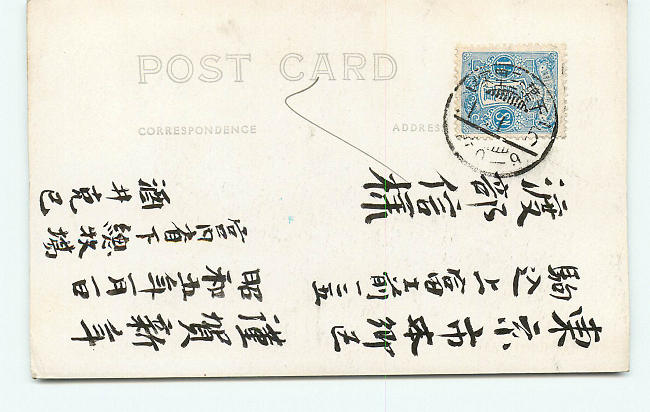 POST CARD
CORRESPONDENCE
ADDRESS
東京市本郷区
駒込上富士前一三五
渡部信様
謹賀新年
昭和五年一月一日
宮内省下総牧場
酒井克巳